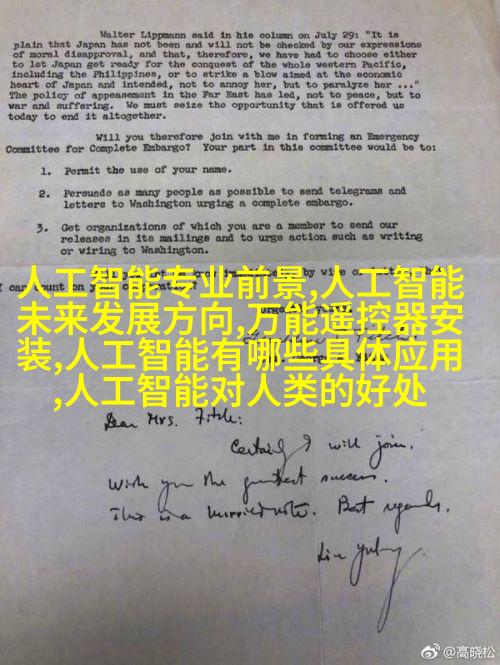 Walter Lippmann said in his column on July 29: "It is
plain that Japan has not been and will not be checked by our expressions
of moral disapproval, and that, therefore, we have had to choose either
to let Japan get ready for the conquest of the whole western Pacific,
including the Philippines, or to strike a blow aimed at the economic
heart of Japan and intended, not to annoy her, but to paralyze her ..."
The policy of appeasement in the Far East has led, not to peace, but to
war and suffering. We must seize the opportunity that is offered us
today to end it altogether.
Will you therefore join with me in forming an Emergency
Committee for Complete Embargo? Your part in this committee would be to:
1. Permit the use of your name.
2. Persuade as many people as possible to send telegrams and
letters to Washington urging a complete embargo.
3. Get organizations of which you are a member to send our
releases in its mailings and to urge action such as writing
or wiring to Washington.
by wire
I can count on your
人工智能专业前景,人工智能
未来发展方向,万能遥控器安
装,人工智能有哪些具体应用
,人工智能对人类的好处
Dear Mrs. Fitch:
Certainly I will join.
Wish you the greatest success.
This is a hurried note. Best regards.
Lin Yutang
@高晓松